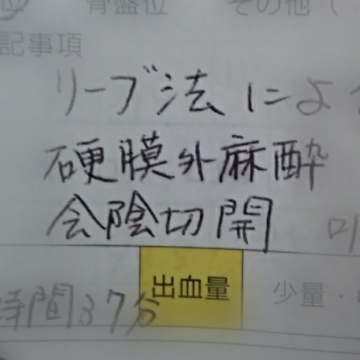 骨盤位 その他（
記事項
リーブ法によ
硬膜外麻酔
会陰切開
出血量 少量・
時間37分